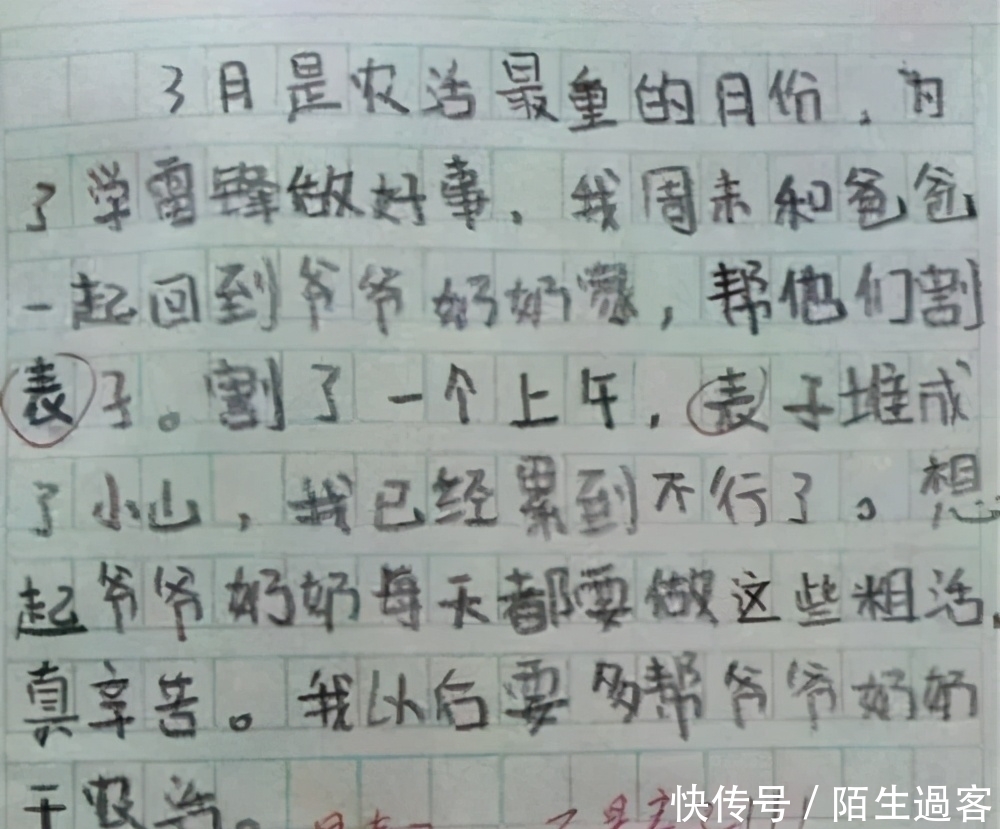 3月是农活最重的月份，为
了学雷锋做好事，我周末和爸爸
一起回到爷爷奶奶家，帮他们割
表子。割了一个上午，表子堆成
了小山，我已经累到不行了。想
起爷爷奶奶每天都要做这些粗活，
真辛苦。我以后要多帮爷爷奶奶
干农活。
快传号 / 陌生過客